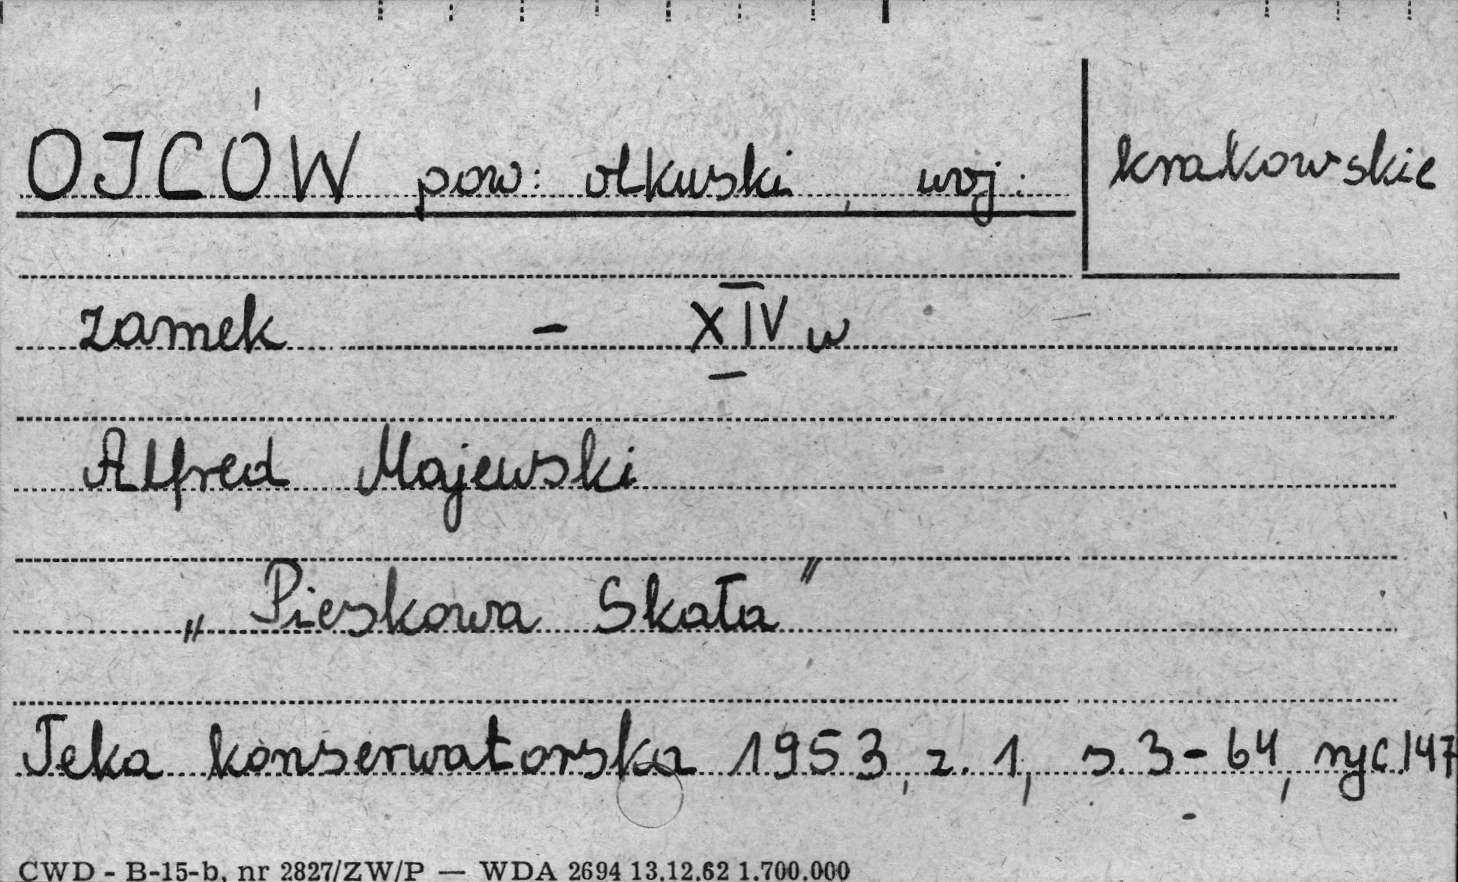 OJCÓW pow: olkuski, woj: krakowskie
zamek - XIV w
Alfred Majewski
„Pieskowa Skała"
Teka konserwatorska 1953, z. 1, s. 3-64, ryc. 147
CWD - B-15-b, nr 2827/ZW/P — WDA 2694 13.12.62 1.700.000